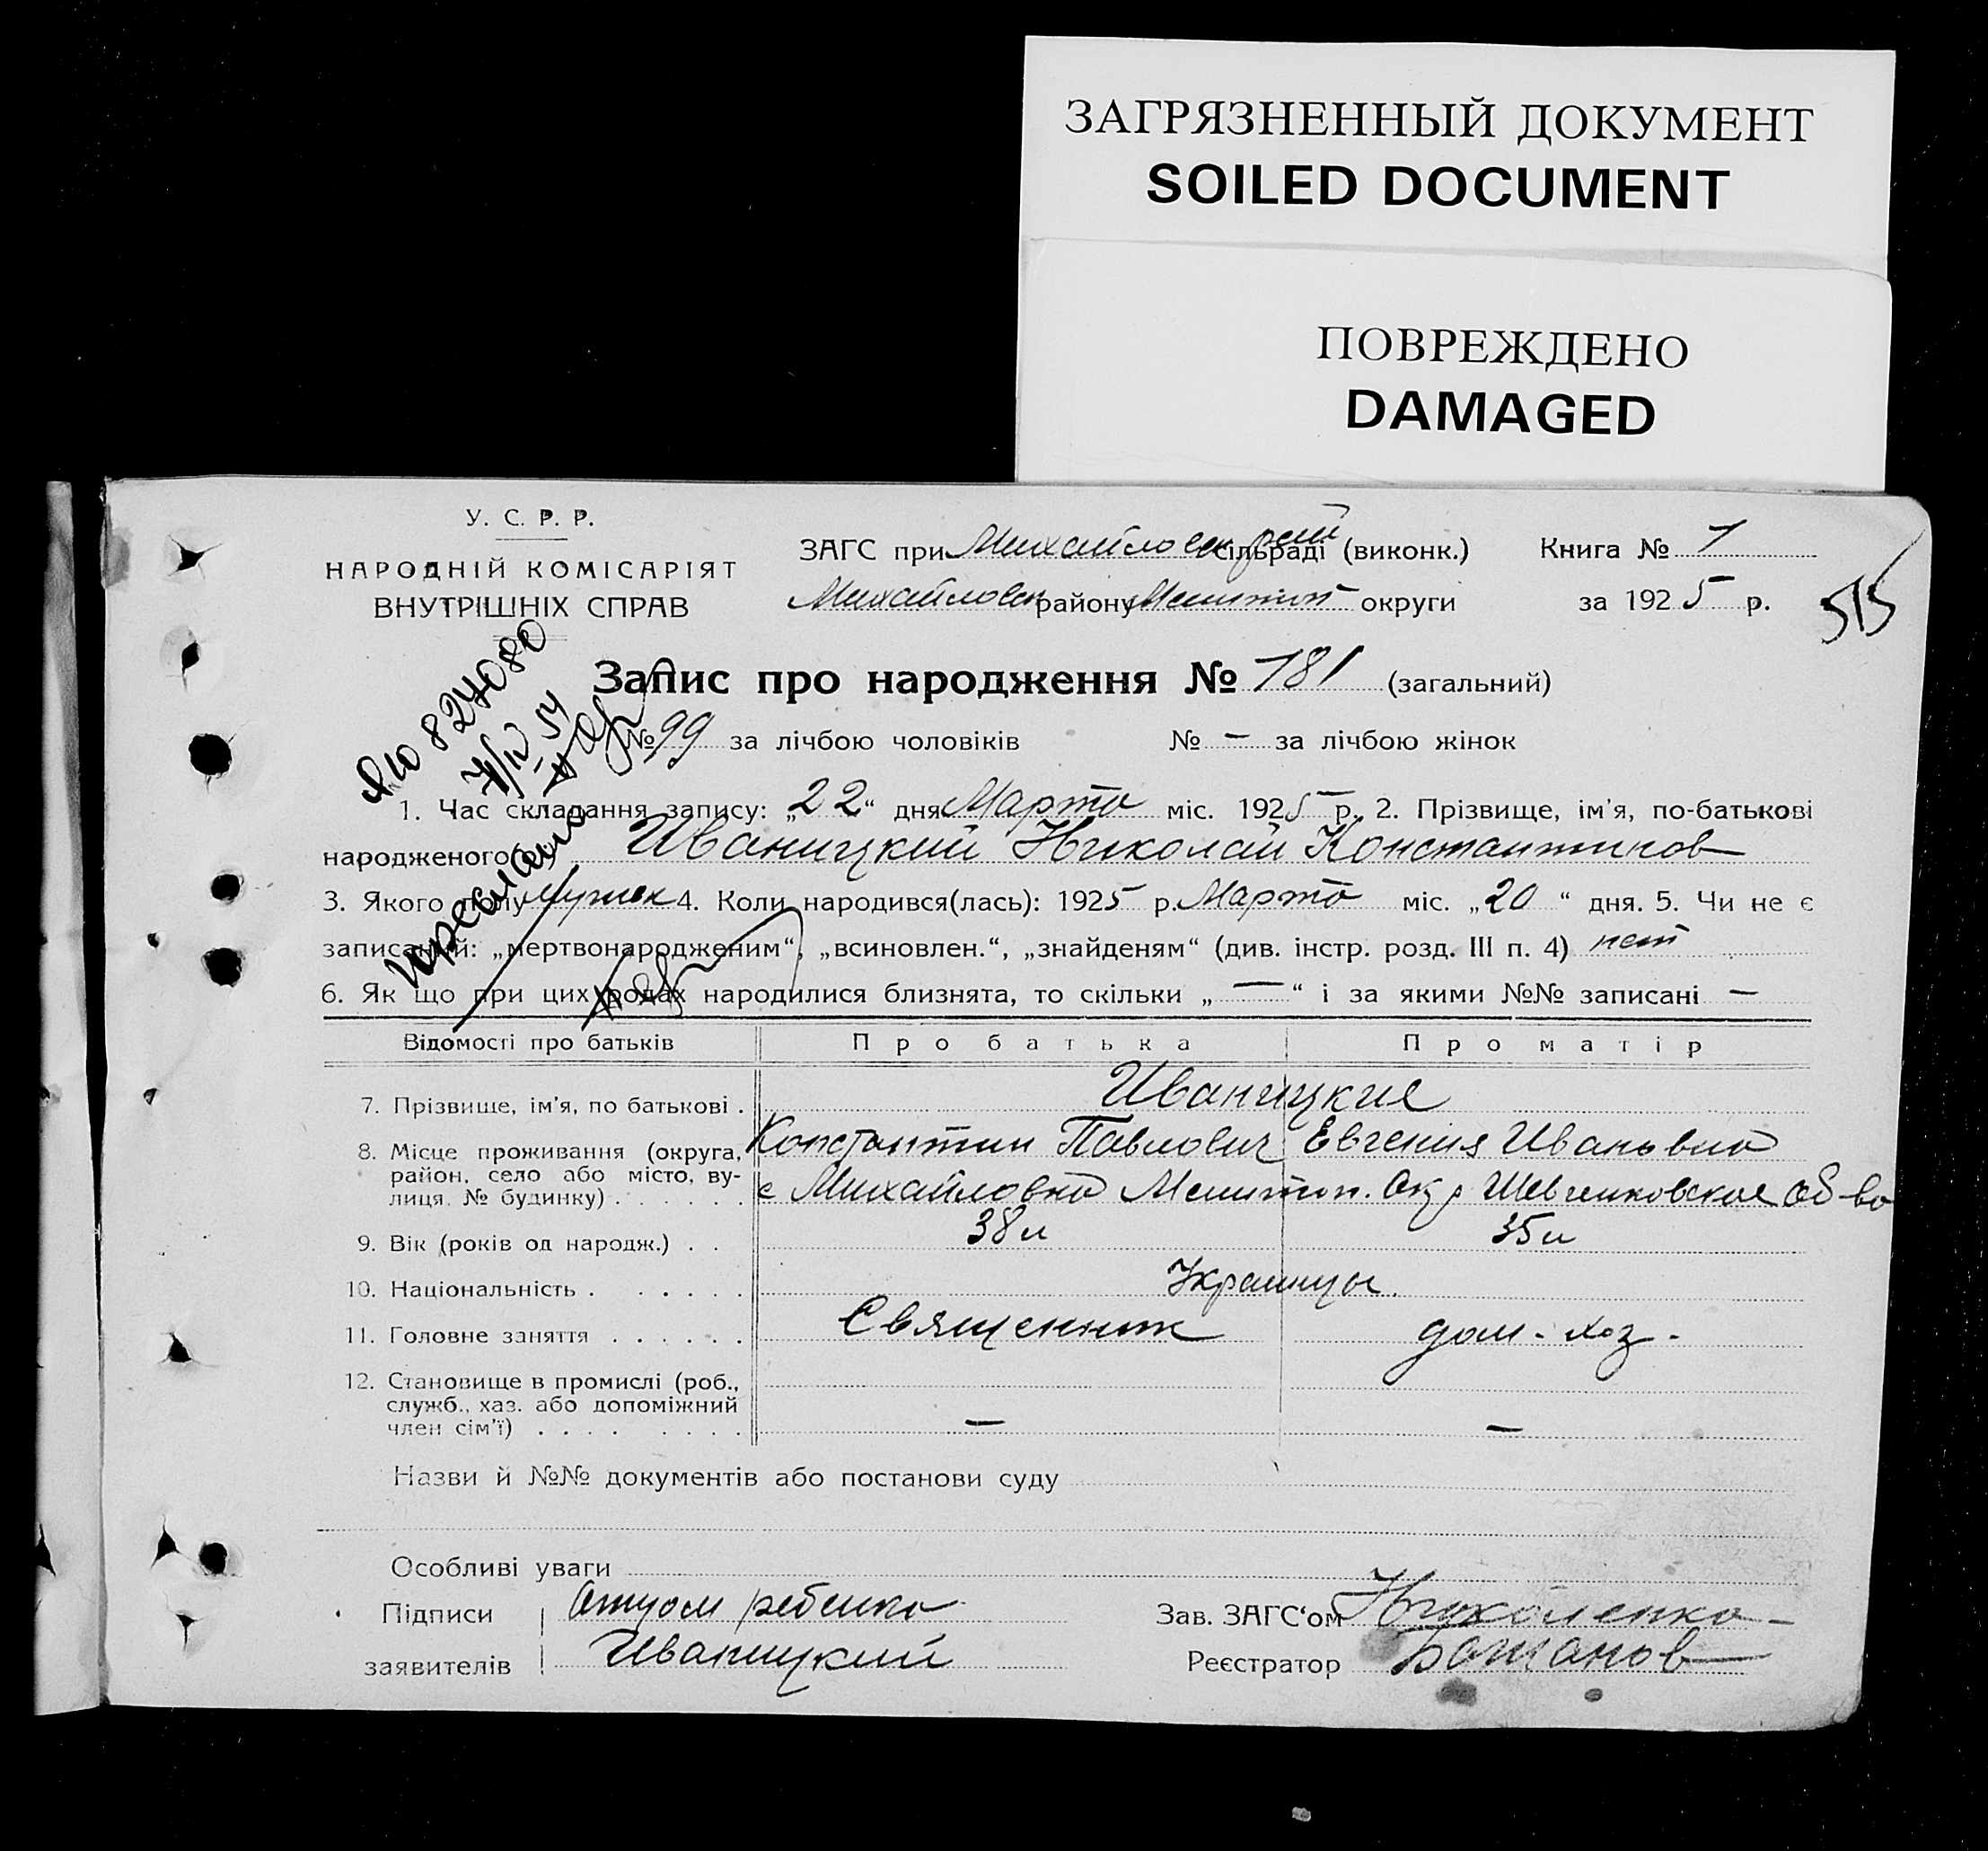 ЗАГРЯЗНЕННЫЙ ДОКУМЕНТ
SOILED DOCUMENT
ПОВРЕЖДЕНО
DAMAGED
У. С. Р. Р.
НАРОДНІЙ КОМІСАРІЯТ
ВНУТРІШНІХ СПРАВ
ЗАГС при Михайловск рай сільраді (виконк.)
Михайловск району Мелитоп округи
Книга № 1
за 1925 р.
515
Запис про народження № 181 (загальний)
№ 99 за лічбою чоловіків № — за лічбою жінок
ЯЮ 827080
1. Час складання запису: „22“ дня Марта міс. 1925 р. 2. Прізвище, ім'я, по-батькові
народженого Иваницкий Николай Константинов
3. Якого полу мужск 4. Коли народився(лась): 1925 р. Марта міс. „20“ дня. 5. Чи не є
записаний: „мертвонародженим“, „всиновлен.“, „знайденям“ (див. інстр. розд. III п. 4) нет
6. Як що при цих родах народилися близнята, то скільки „—“ і за якими №№ записані —
Відомості про батьків Про батька Про матір
7. Прізвище, ім'я, по батькові . Иваницкие
Константин Павлович Евгения Ивановна
8. Місце проживання (округа, район, село або місто, ву-
лиця, № будинку) . . . . . . с Михайловка Мелитоп. Окр Шевченковское Об-во
9. Вік (років од народж.) . . 38 л 35 л
10. Національність . . . . . . Украинцы
11. Головне заняття . . . . . . Священник дом. хоз.
12. Становище в промислі (роб.,
служб., хаз. або допоміжний
член сім'ї) . . . . . . . . — —
Назви й №№ документів або постанови суду
Особливі уваги
Підписи Отцом ребенка Зав. ЗАГС'ом Николенко
заявителів Иваницкий Реєстратор Божанов